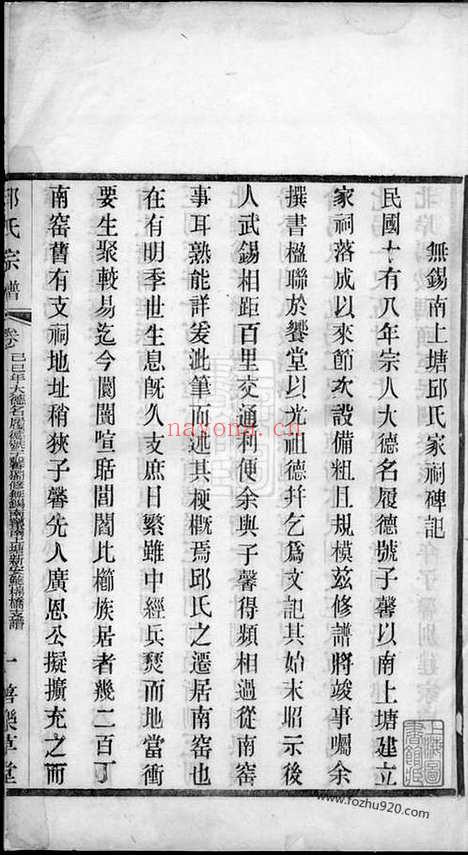 無錫南上塘邱氏家祠碑記
民國十有八年宗人大德名履德號子馨以南上塘建立
家祠落成以來節次設備粗具規模茲修譜將竣事囑余
撰書楹聯於饗堂以光祖德幷乞爲文記其始末昭示後
人武錫相距百里交通利便余與子馨得頻相過從南窑
事耳熟能詳爰泚筆而述其梗概焉邱氏之遷居南窑也
在有明季世生息旣久支庶日繁雖中經兵燹而地當衝
要生聚較易迄今闤闠喧聒閭閻比櫛族居者幾二百丁
南窑舊有支祠地址稍狹子馨先人廣恩公擬擴充之而
邱氏宗譜
己巳年大德名履德號子馨
一 善樂草堂
上海圖書館藏
naxong.cn
www.fozhu920.com